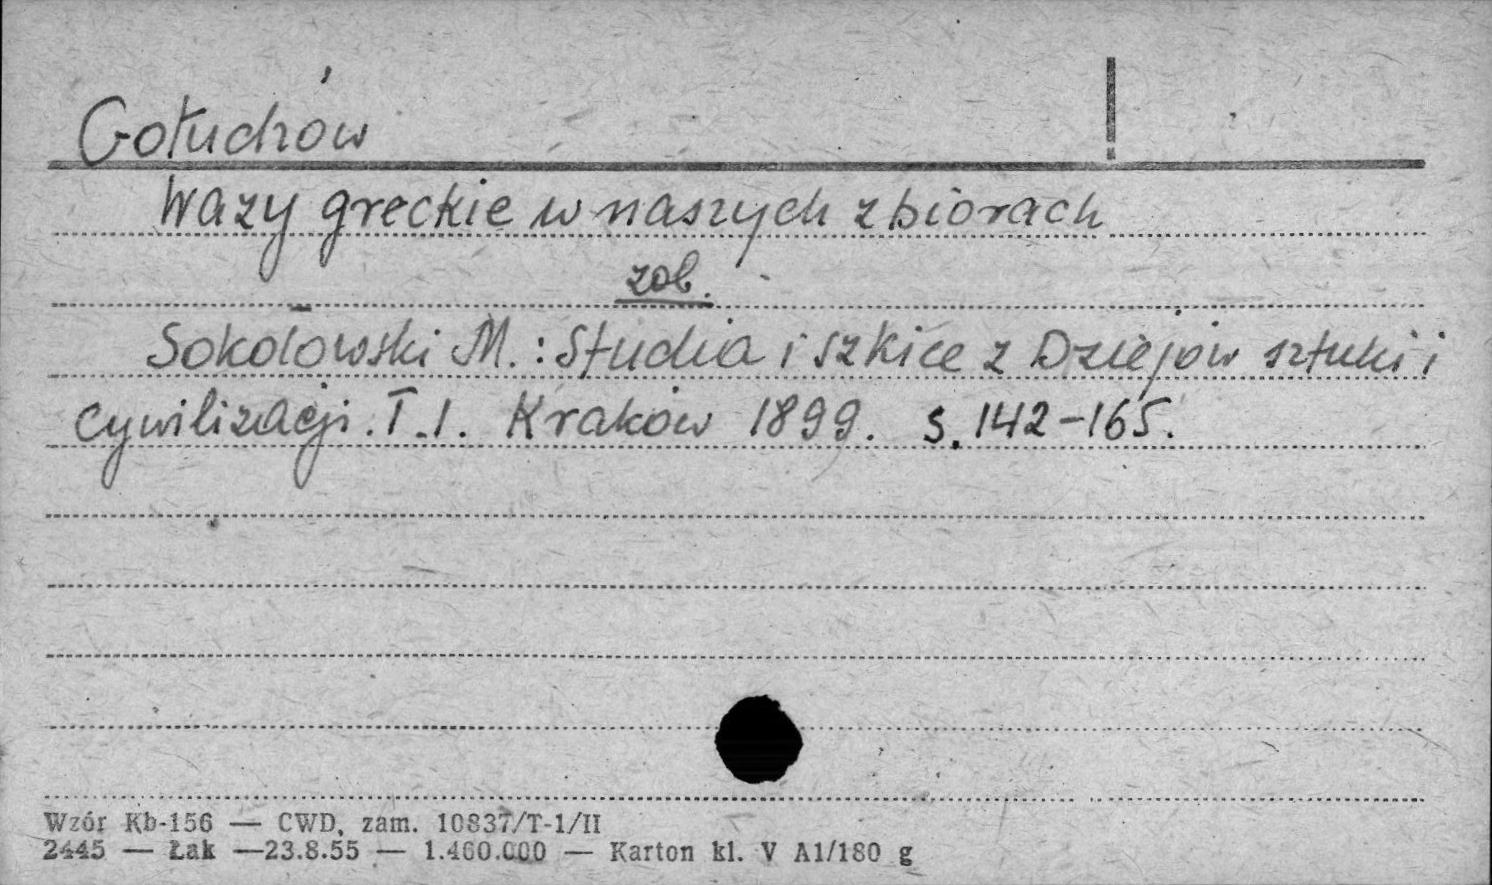 Gołuchów
Wazy greckie w naszych zbiorach
zob.
Sokołowski M. : Studia i szkice z Dziejów sztuki i
cywilizacji. T. I. Kraków 1899. s. 142-165.
Wzór Kb-156 — CWD, zam. 10837/T-1/II
2445 — Łak —23.8.55 — 1.460.000 — Karton kl. V A1/180 g